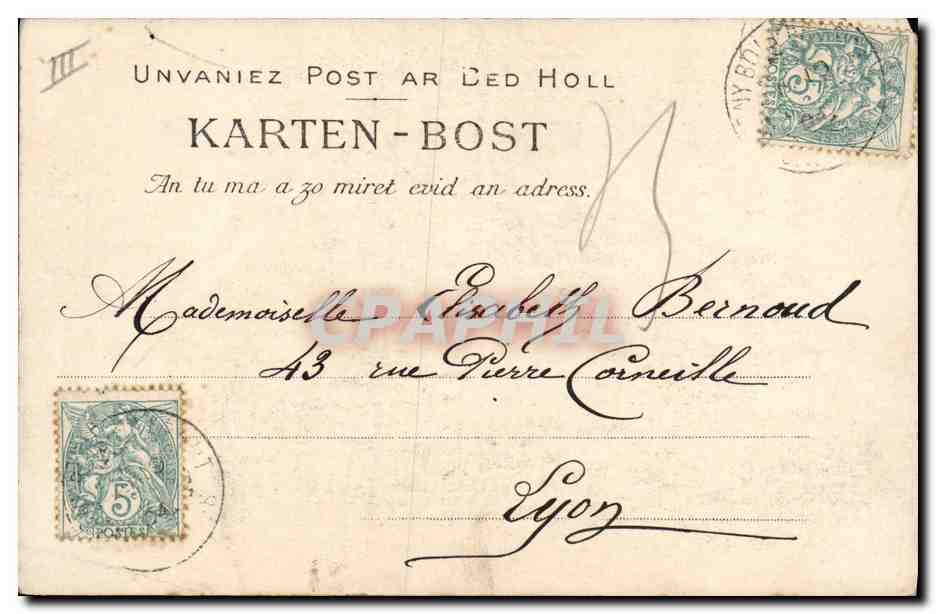 III
UNVANIEZ POST AR BED HOLL
KARTEN-BOST
An tu ma a zo miret evid an adress.
Mademoiselle Elisabeth Bernoud
43 rue Pierre Corneille
Lyon
CPAPHIL
5c
5c
POSTES